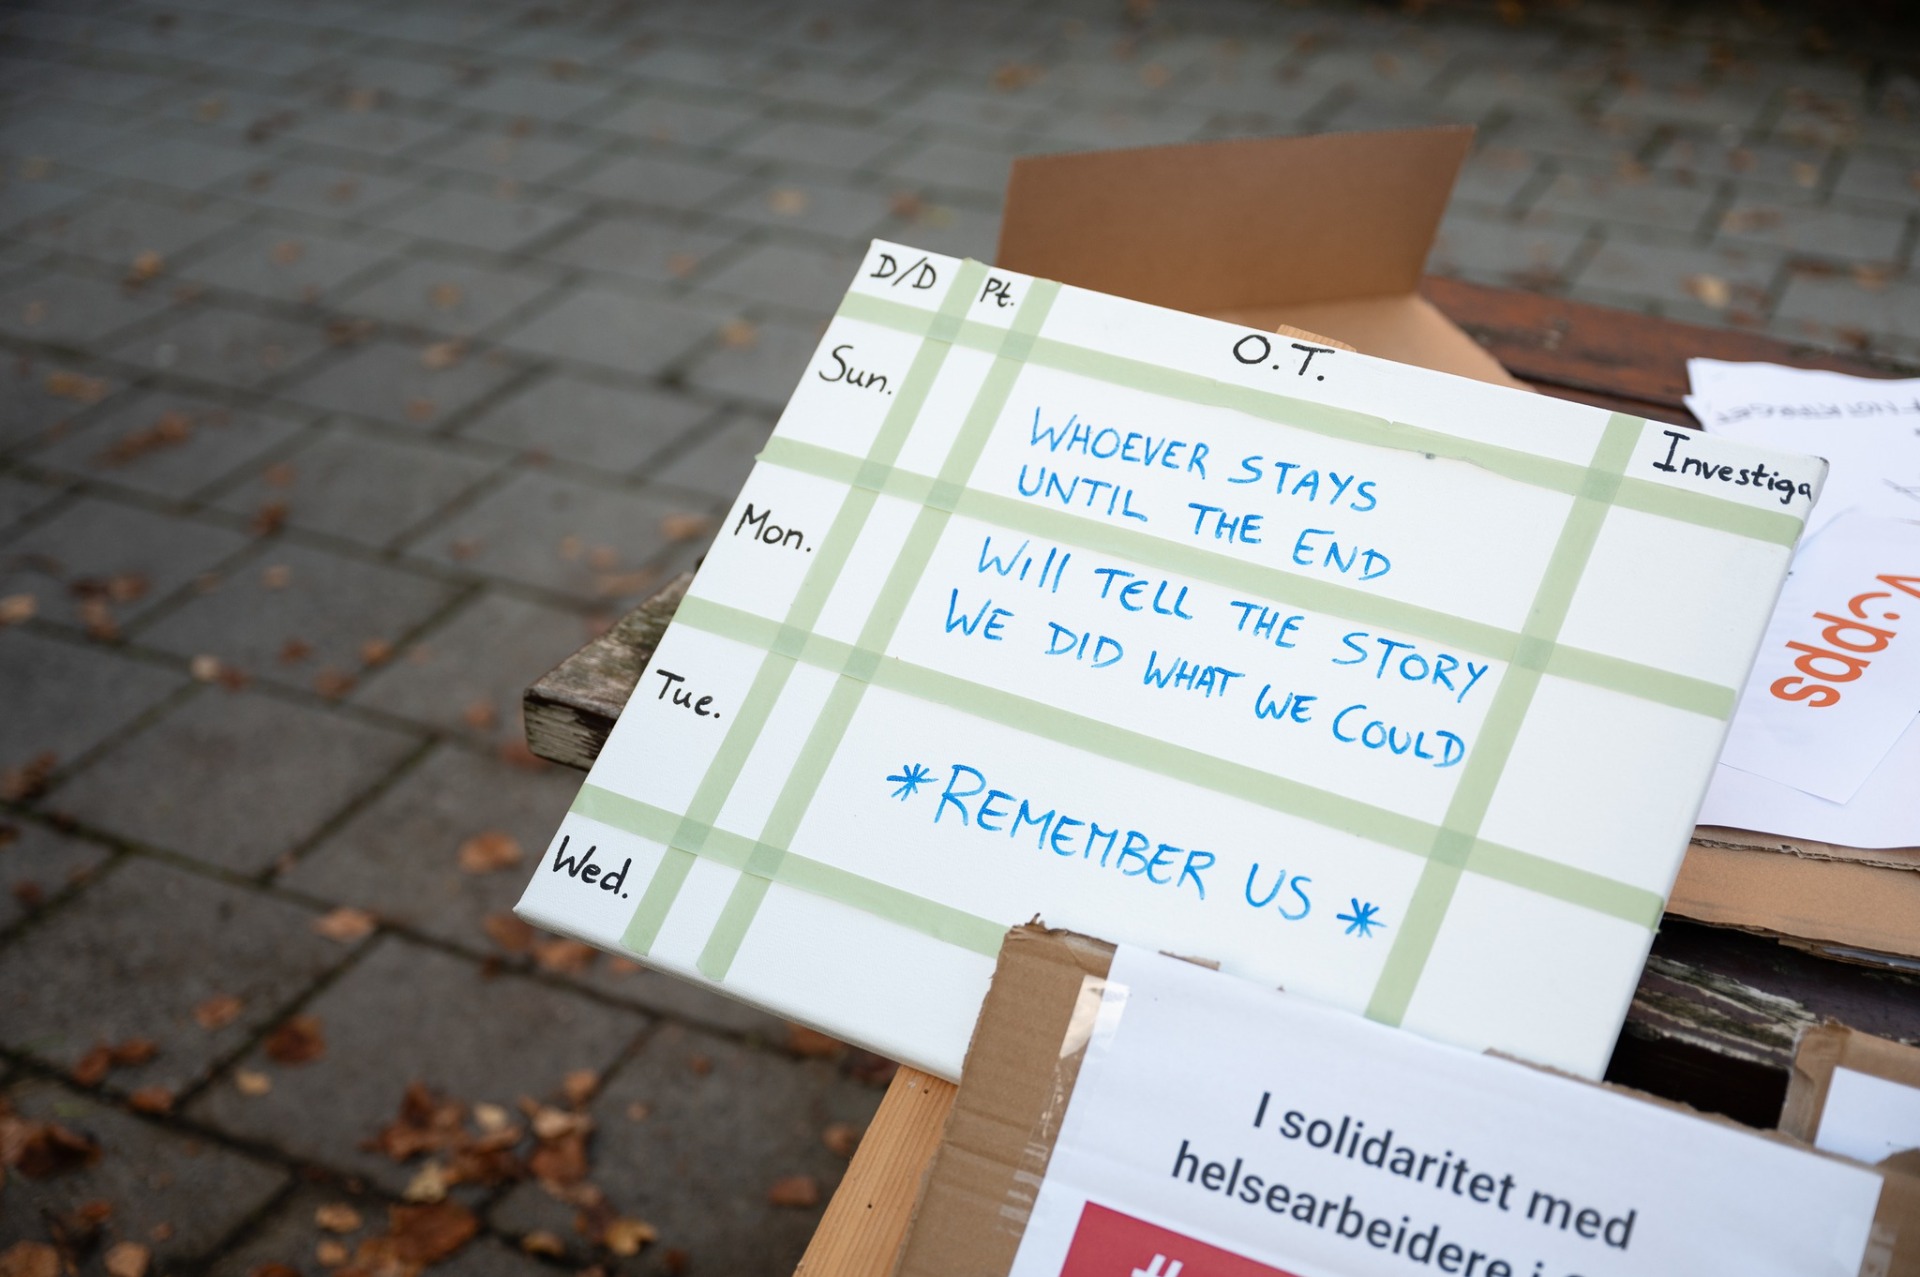 D/D Pt. O.T. Investiga
Sun.
WHOEVER STAYS
UNTIL THE END
Mon.
Will TELL THE STORY
WE DID WHAT WE COULD
Tue.
*REMEMBER US*
Wed.
I solidaritet med
helsearbeidere i
#